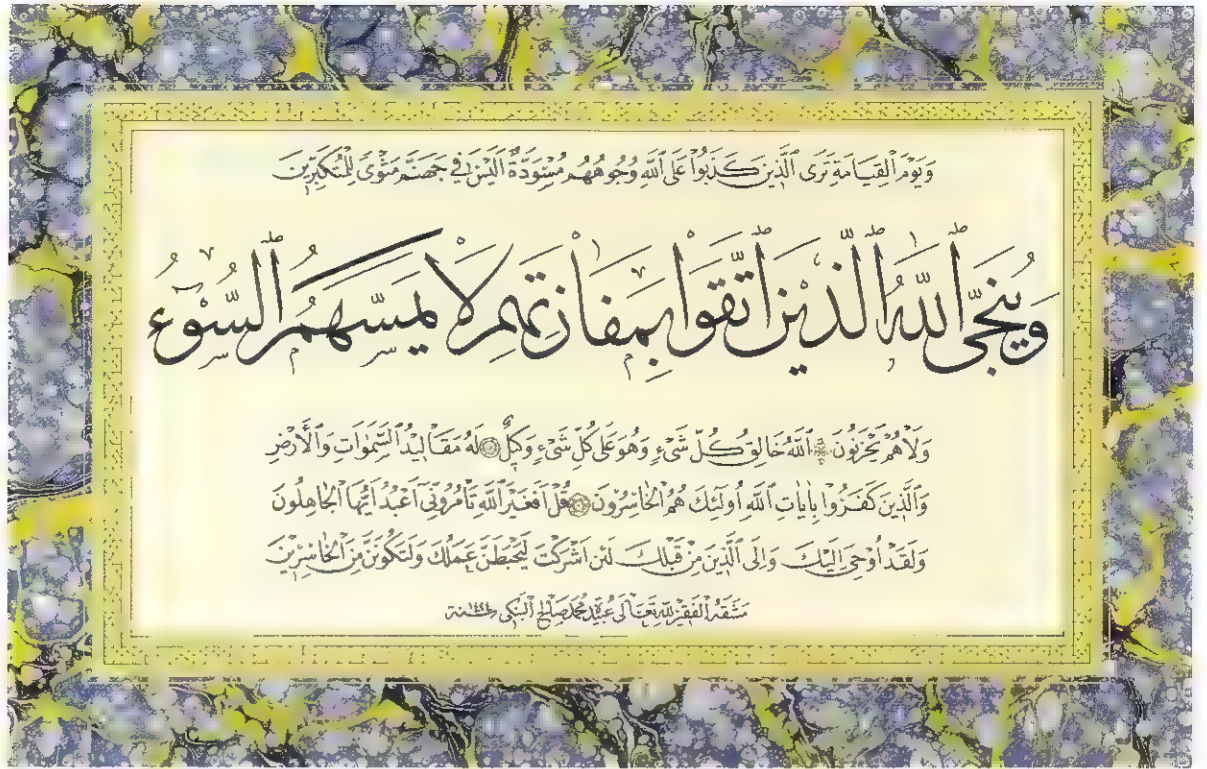 وَيَوْمَ الْقِيَامَةِ تَرَى الَّذِينَ كَذَبُوا عَلَى اللَّهِ وُجُوهُهُم مُسْوَدَّةٌ أَلَيْسَ فِي جَهَنَّمَ مَثْوًى لِلْمُتَكَبِّرِينَ
وَيُنَجِّي اللَّهُ الَّذِينَ اتَّقَوْا بِمَفَازَتِهِمْ لَا يَمَسُّهُمُ السُّوْءُ
وَلَا هُمْ يَحْزَنُونَ اللَّهُ خَالِقُ كُلِّ شَيْءٍ وَهُوَ عَلَى كُلِّ شَيْءٍ وَكِيلٌ لَهُ مَقَالِيدُ السَّمٰوَاتِ وَالْأَرْضِ
وَالَّذِينَ كَفَرُوا بِآيَاتِ اللَّهِ أُولَئِكَ هُمُ الْخَاسِرُونَ قُلْ أَفَغَيْرَ اللَّهِ تَأْمُرُونِّي أَعْبُدُ أَيُّهَا الْجَاهِلُونَ
وَلَقَدْ أُوحِيَ إِلَيْكَ وَإِلَى الَّذِينَ مِنْ قَبْلِكَ لَئِنْ أَشْرَكْتَ لَيَحْبَطَنَّ عَمَلُكَ وَلَتَكُونَنَّ مِنَ الْخَاسِرِينَ
مَشَقَهُ الْفَقِيرُ لِلَّهِ تَعَالَى عُبَيْد مُحَمَّد صَالِح الْبَنْكِي